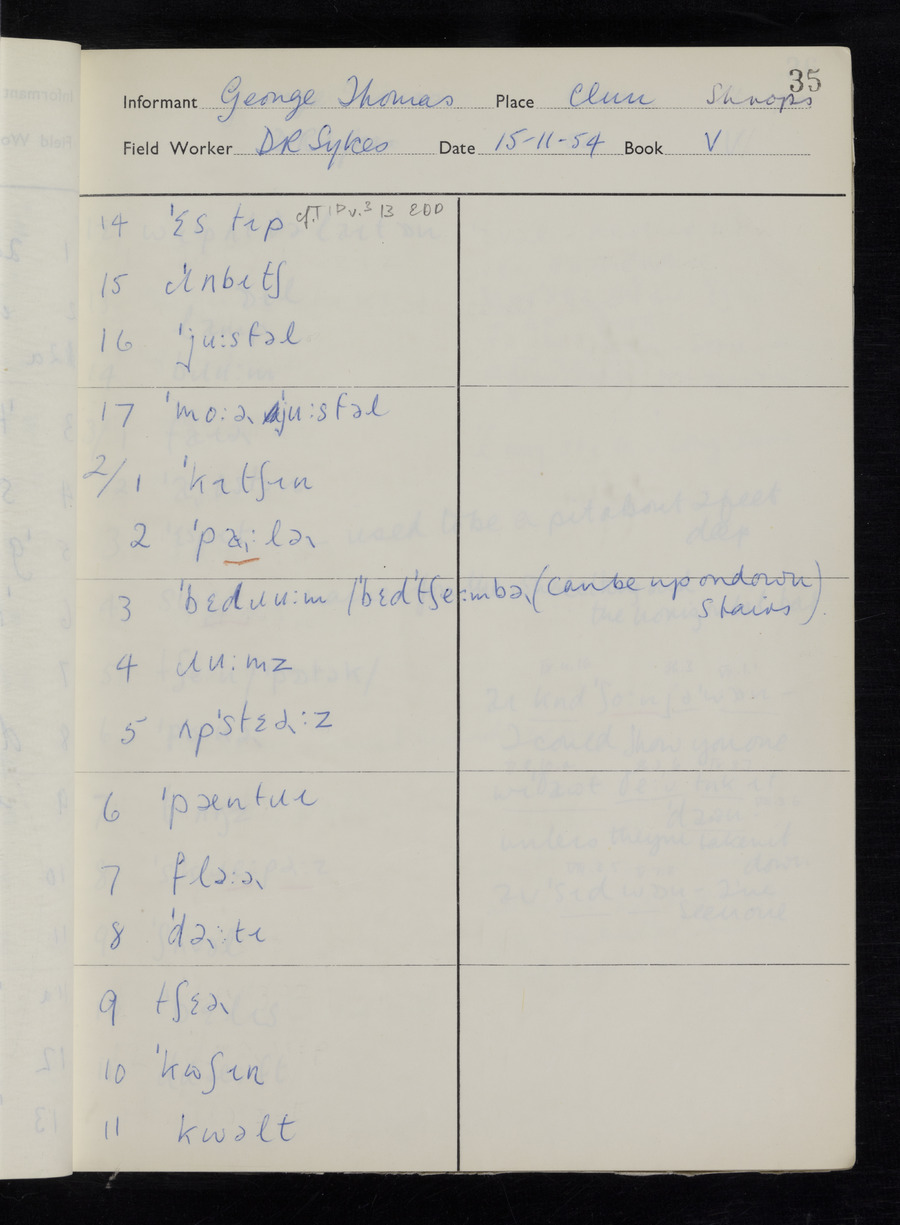 35
Informant George Thomas Place Clun Shrops
Field Worker D R Sykes Date 15-11-54 Book V
14 'ɛs tɪp
15 ɹʌnbɪtʃ
16 'ju:sfəl
17 'mo:ɚ ju:sfəl
2/1 'kɪtʃɪn
2 'pɚ:lɚ
3 'bɛdɹu:m / 'bɛd'tʃe:mbɚ (can be up or down
stairs).
4 ɹu:mz
5 ʌp'stɛɚ:z
6 'pæntɹɪ
7 flɔ:ɚ
8 'dɚ:tɪ
9 tʃɛɚ
10 'kʊʃɪn
11 kwəlt